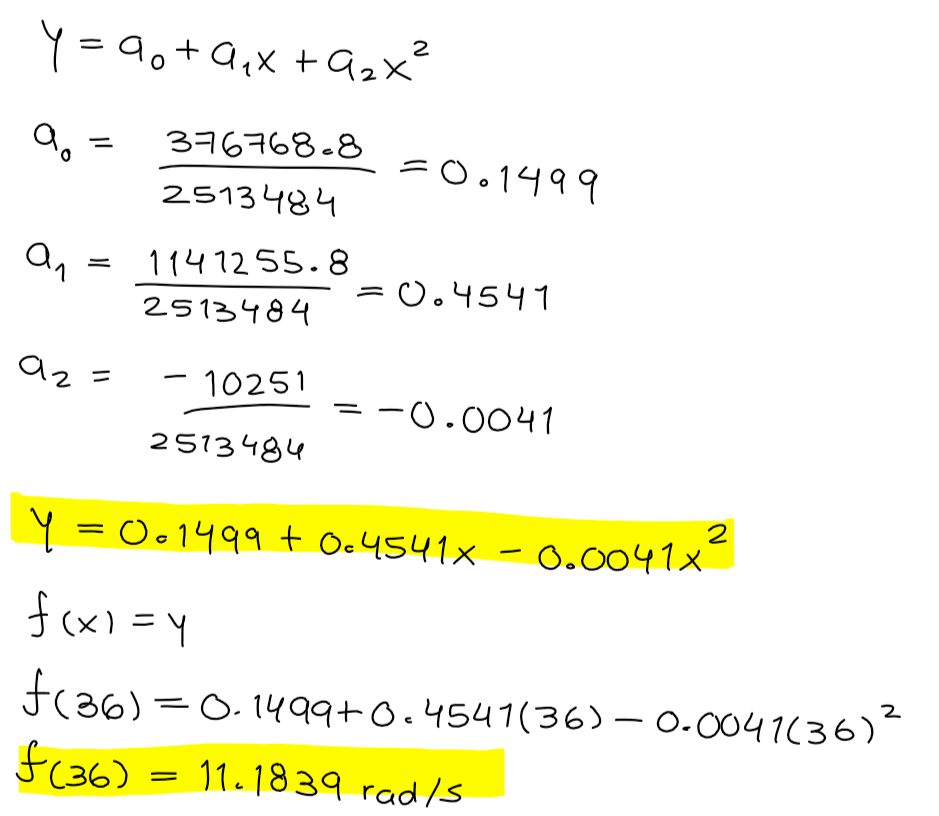 y = a₀ + a₁x + a₂x²
a₀ = 376768.8 / 2513484 = 0.1499
a₁ = 1141255.8 / 2513484 = 0.4541
a₂ = -10251 / 2513484 = -0.0041
y = 0.1499 + 0.4541x - 0.0041x²
f(x) = y
f(36) = 0.1499 + 0.4541(36) - 0.0041(36)²
f(36) = 11.1839 rad/s